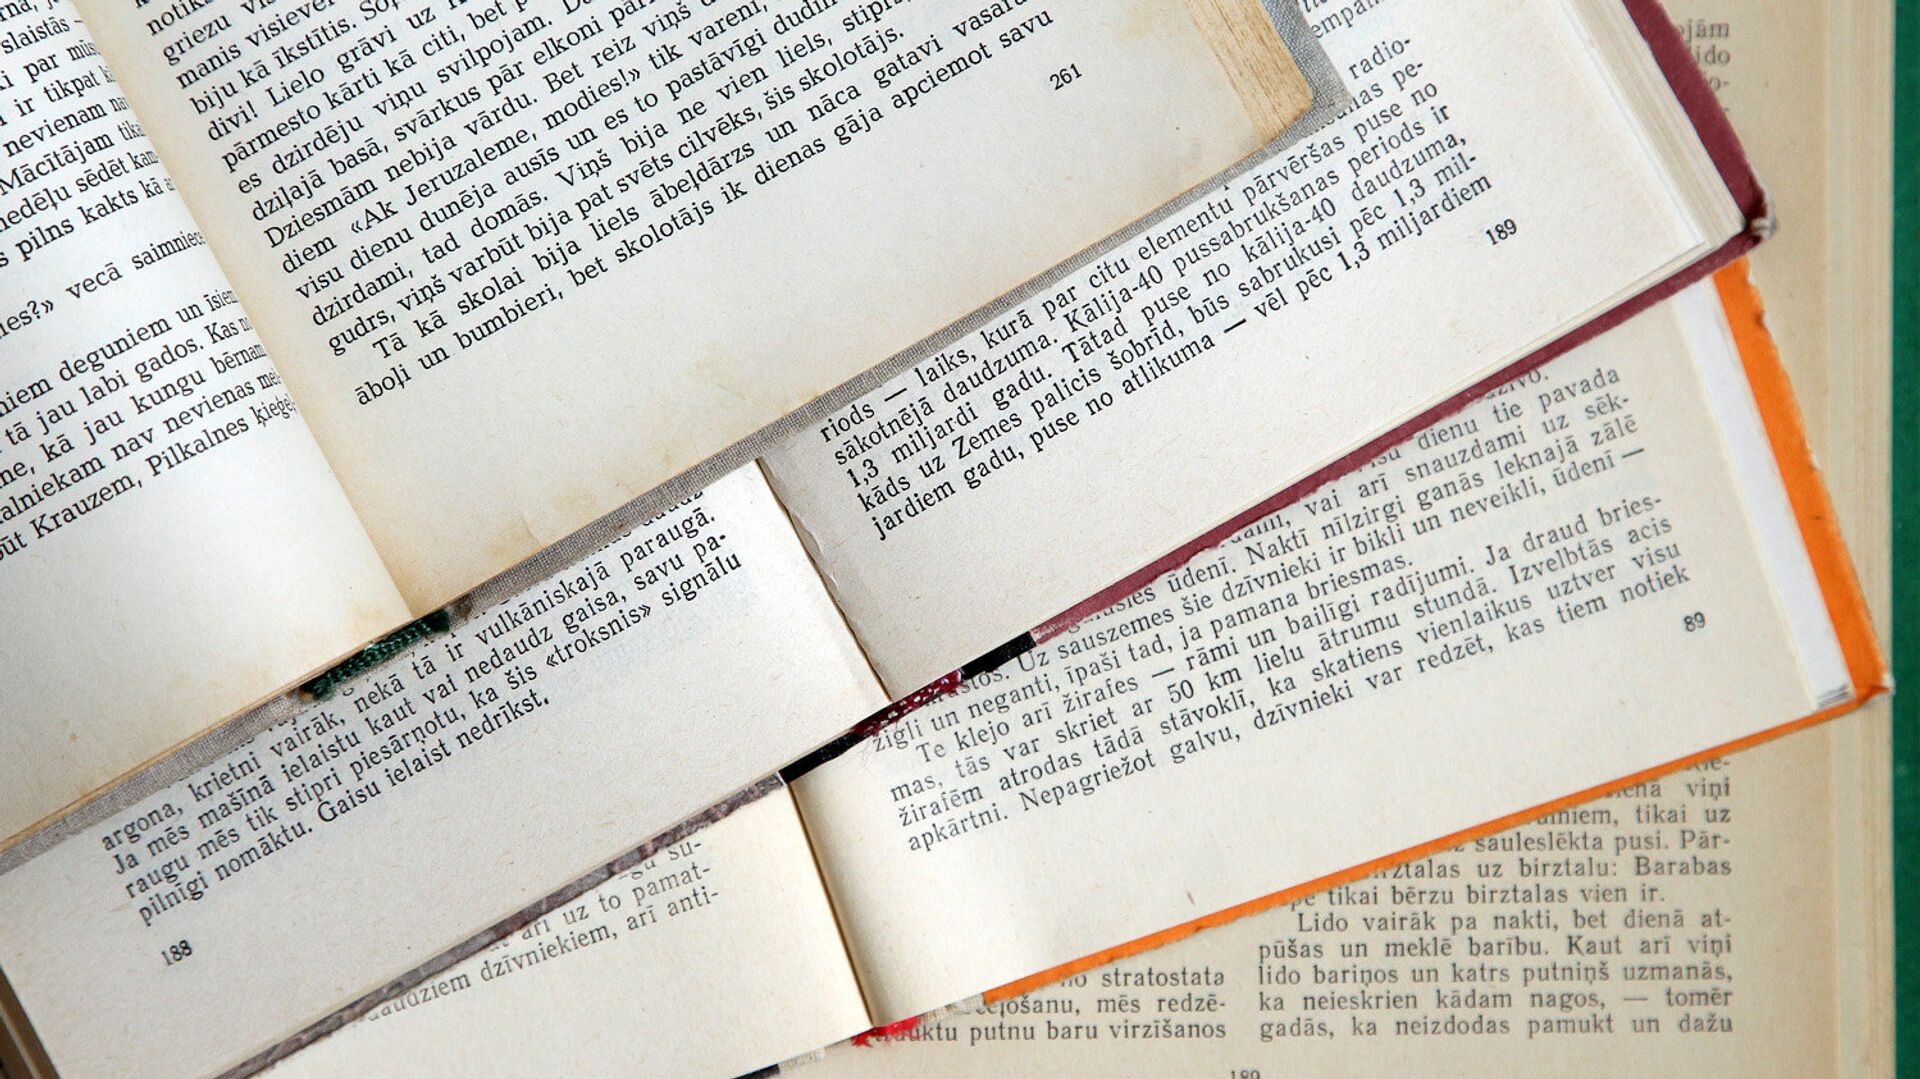 slaistās —
ki par mūs
ir tikpat
nevienam nav
Mācītājam tika
nedēļu sēdēt kam
s pilns kakts kā
vecā saimniece
niem deguniem un īsiem
tā jau labi gados. Kas
ne, kā jau kungu bērnam
alniekam nav nevienas
būt Krauzem, Pilkalnes ķieģeļ
griezu
manis visievē
biju kā īkstītis.
divi! Lielo grāvi uz
pārmesto kārti kā citi, bet
es dzirdēju viņu svilpojam.
dziļajā basā, svārkus pār elkoni pār
Dziesmām nebija vārdu. Bet reiz viņš
diem «Ak Jeruzaleme, modies!» tik vareni,
visu dienu dunēja ausīs un es to pastāvīgi dudin
dzirdami, tad domās. Viņš bija ne vien liels, stiprs,
gudrs, viņš varbūt bija pat svēts cilvēks, šis skolotājs.
Tā kā skolai bija liels ābeļdārzs un nāca gatavi vasara
āboļi un bumbieri, bet skolotājs ik dienas gāja apciemot savu
261
radio-
pe-
riods — laiks, kurā par citu elementu pārvēršas puse no
sākotnējā daudzuma. Kālija-40 pussabrukšanas periods ir
1,3 miljardi gadu. Tātad puse no kālija-40 daudzuma,
kāds uz Zemes palicis šobrīd, būs sabrukusi pēc 1,3 mil-
jardiem gadu, puse no atlikuma — vēl pēc 1,3 miljardiem
189
argona, krietni vairāk, nekā tā ir vulkāniskajā paraugā.
Ja mēs mašīnā ielaistu kaut vai nedaudz gaisa, savu pa-
raugu mēs tik stipri piesārņotu, ka šis «troksnis» signālu
pilnīgi nomāktu. Gaisu ielaist nedrīkst.
188
dienu tie pavada
vai arī snauzdami uz sēk-
ūdenī. Naktī nīlzirgi ganās leknajā zālē
Uz sauszemes šie dzīvnieki ir bikli un neveikli, ūdenī —
žigli un neganti, īpaši tad, ja pamana briesmas.
Te klejo arī žirafes — rāmi un bailīgi radījumi. Ja draud bries-
mas, tās var skriet ar 50 km lielu ātrumu stundā. Izvelbtās acis
žirafēm atrodas tādā stāvoklī, ka skatiens vienlaikus uztver visu
apkārtni. Nepagriežot galvu, dzīvnieki var redzēt, kas tiem notiek
89
su-
arī uz to pamat-
daudziem dzīvniekiem, arī anti-
no stratostata
mēs redzē-
putnu baru virzīšanos
viņi
tikai uz
saulesl​ēkta pusi. Pār-
uz birztalu: Barabas
tikai bērzu birztalas vien ir.
Lido vairāk pa nakti, bet dienā at-
pūšas un meklē barību. Kaut arī viņi
lido bariņos un katrs putniņš uzmanās,
ka neieskrien kādam nagos, — tomēr
gadās, ka neizdodas pamukt un dažu
189